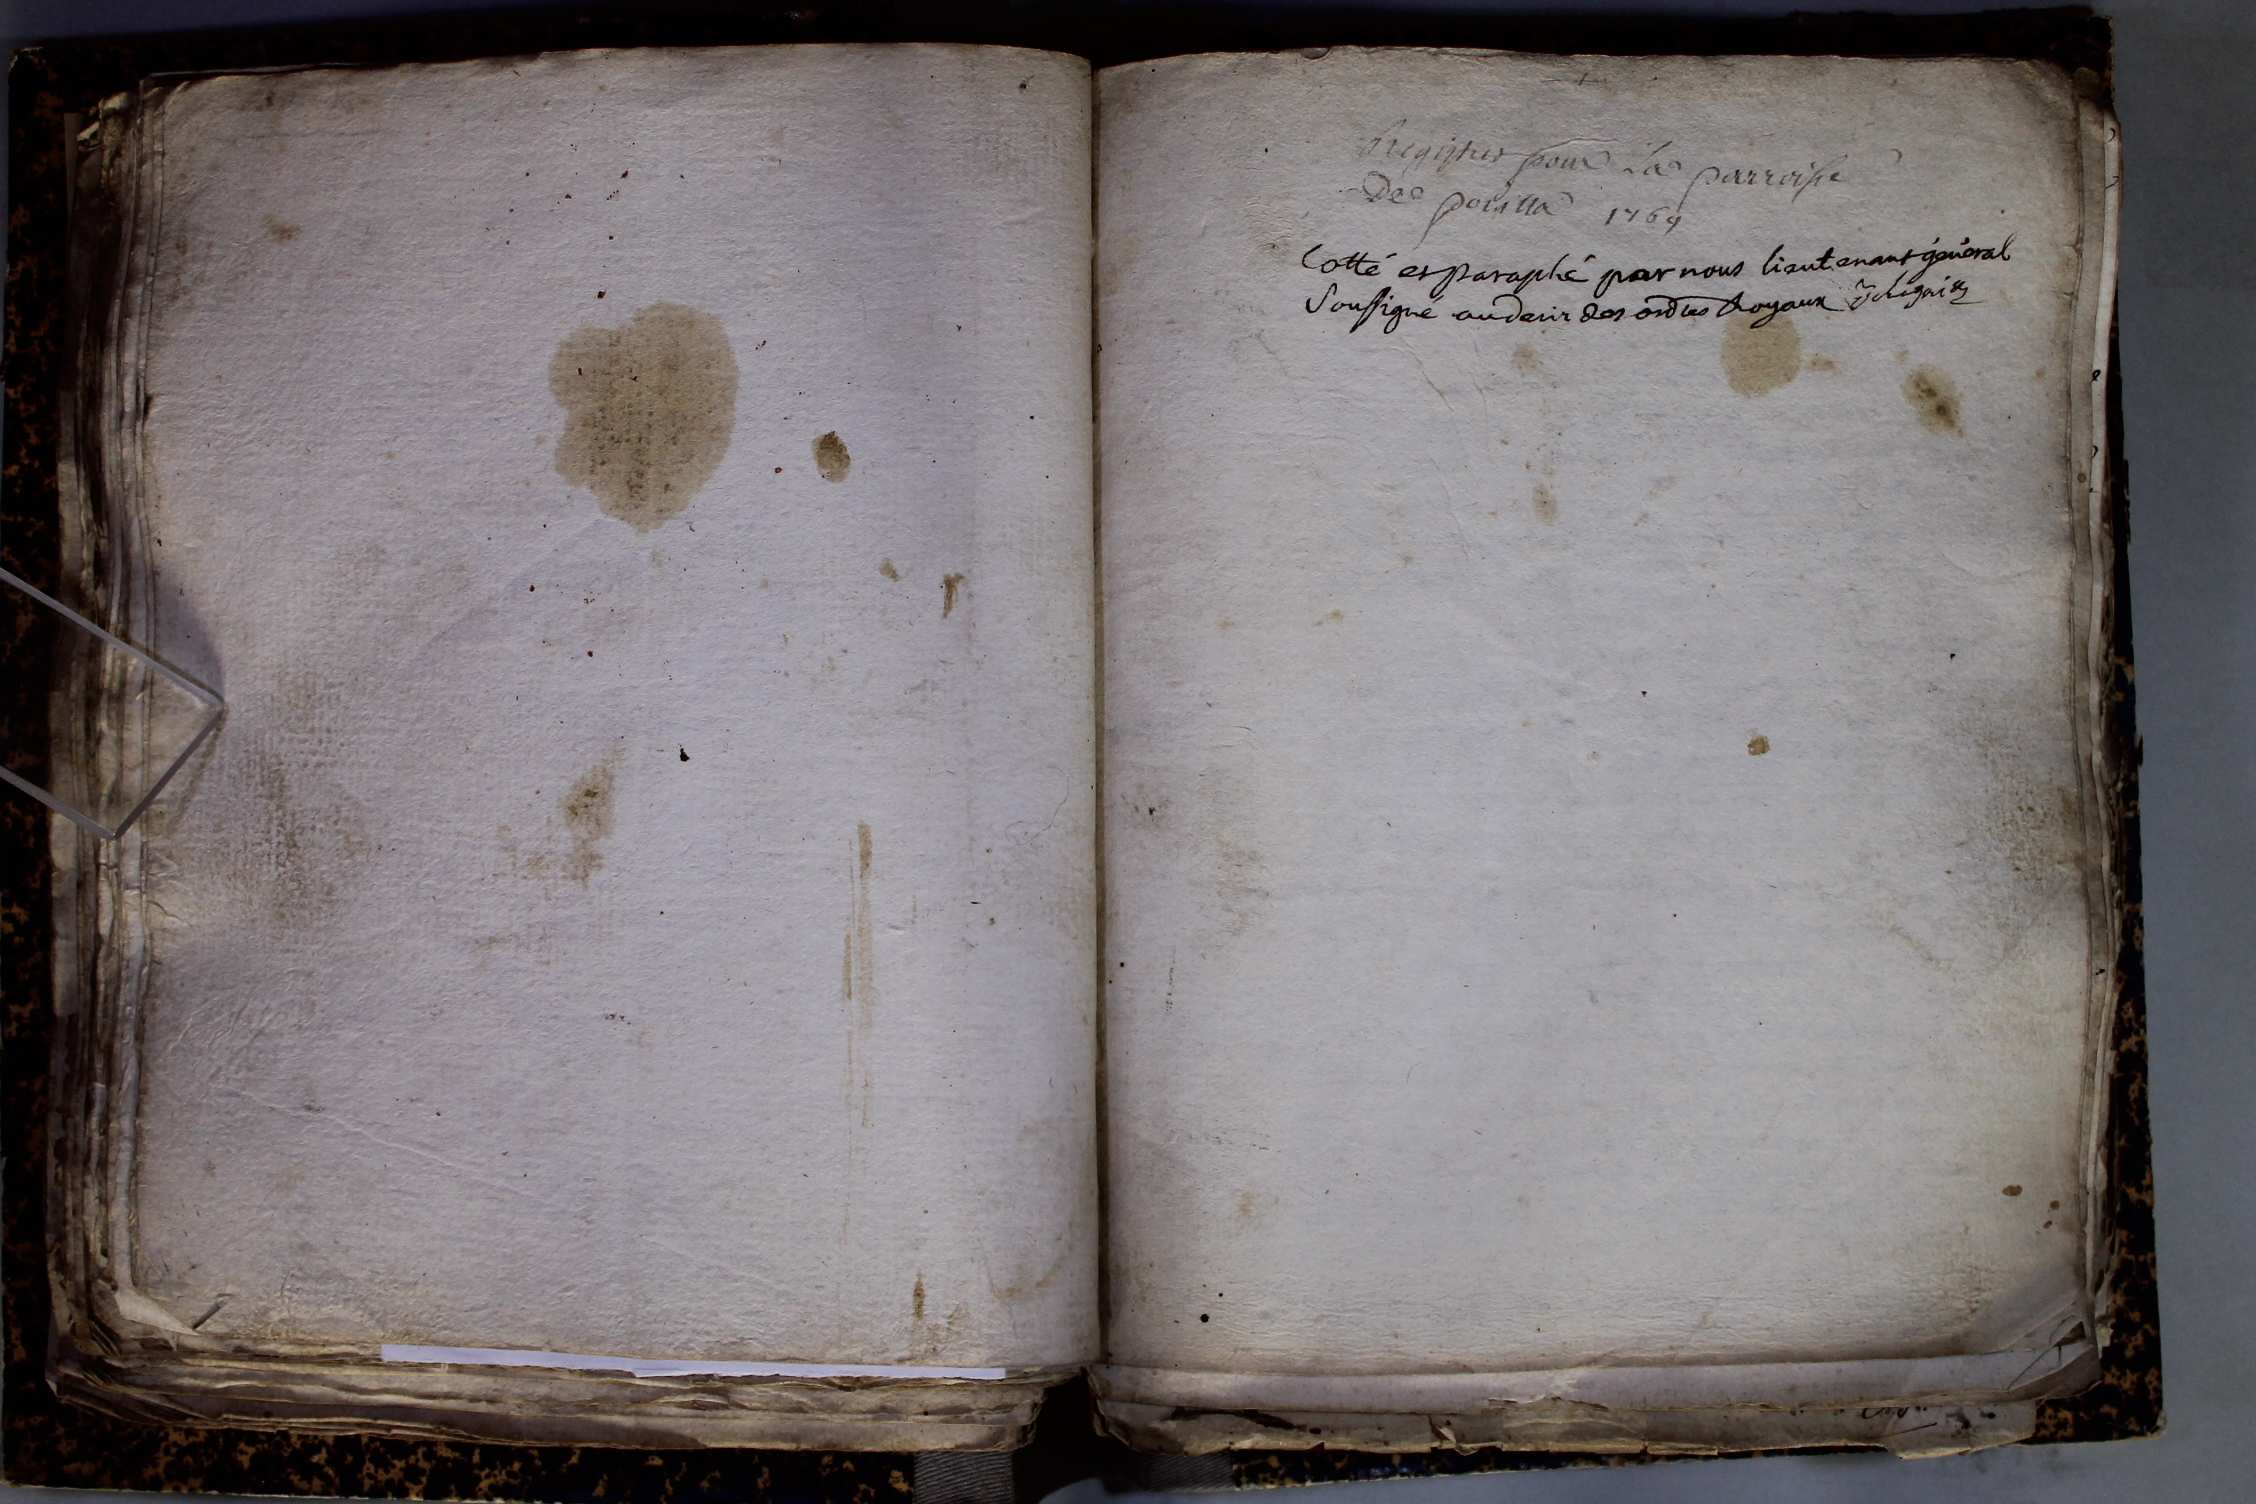 Registres pour La parroisse
De poisuta 1769
Cotté et paraphé par nous lieutenant général
Soussigné au desir des ordres Royaux